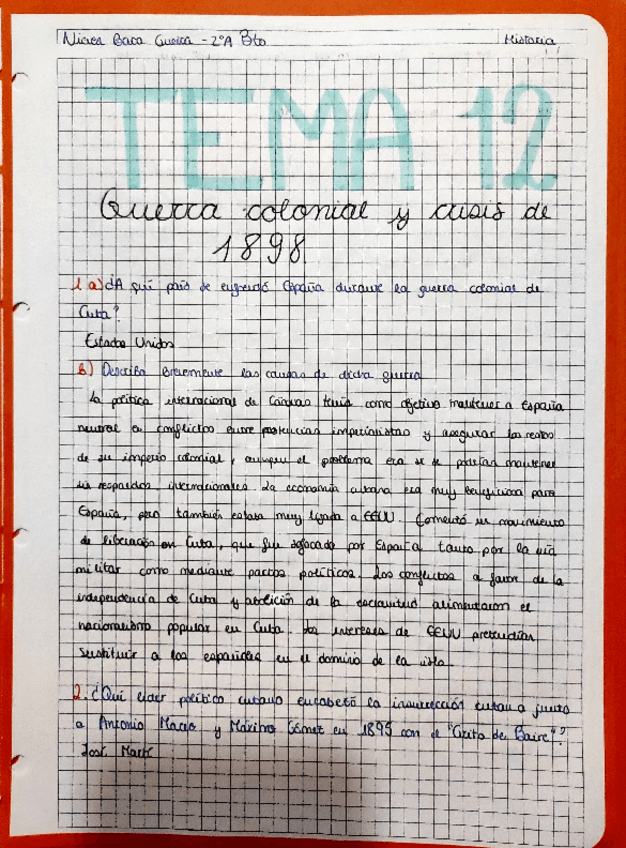 Nierea Baca Guerra - 2ºA Bto Historia
TEMA 12
Guerra colonial y crisis de
1898
1 a) ¿A qué país se enfrentó España durante la guerra colonial de
Cuba?
Estados Unidos
b) Describa brevemente las causas de dicha guerra
La política internacional de Cánovas tenía como objetivo mantener a España
neutral en conflictos entre potencias imperialistas y asegurar los restos
de su imperio colonial, aunque el problema era si se podrían mantener
sin respaldos internacionales. La economía cubana era muy beneficiosa para
España, pero también estaba muy ligada a EEUU. Comentó un movimiento
de liberación en Cuba, que fue sofocado por España tanto por la vía
militar como mediante pactos políticos. Los conflictos a favor de la
independencia de Cuba y abolición de la esclavitud alimentaron el
nacionalismo popular en Cuba. Los intereses de EEUU pretendían
sustituir a los españoles en el dominio de la isla.
2. ¿Qué líder político cubano encabezó la insurrección cubana junto
a Antonio Maceo y Máximo Gómez en 1895 con el "Grito de Baire"?
José Martí